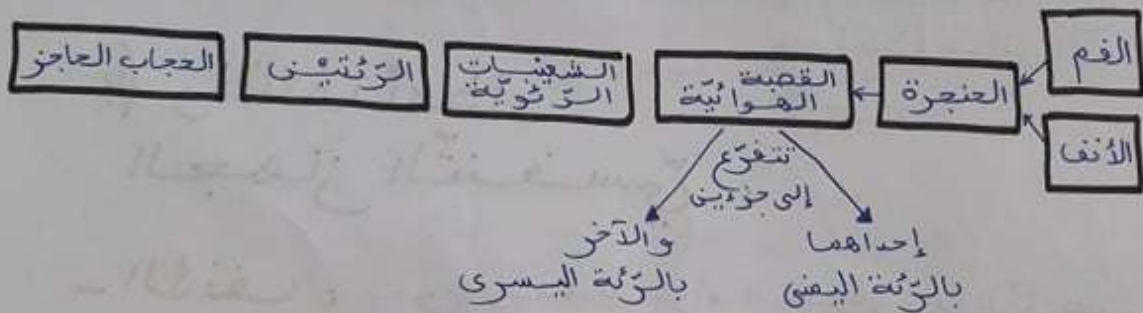 الفم
الأنف
الحنجرة
القصبة
الهوائيّة
الشعيبات
الرّئويّة
الرّئتيْن
الحجاب الحاجز
تتفرّع
إلى جزءين
إحداهما
بالرّئة اليمنى
والآخر
بالرّئة اليسرى